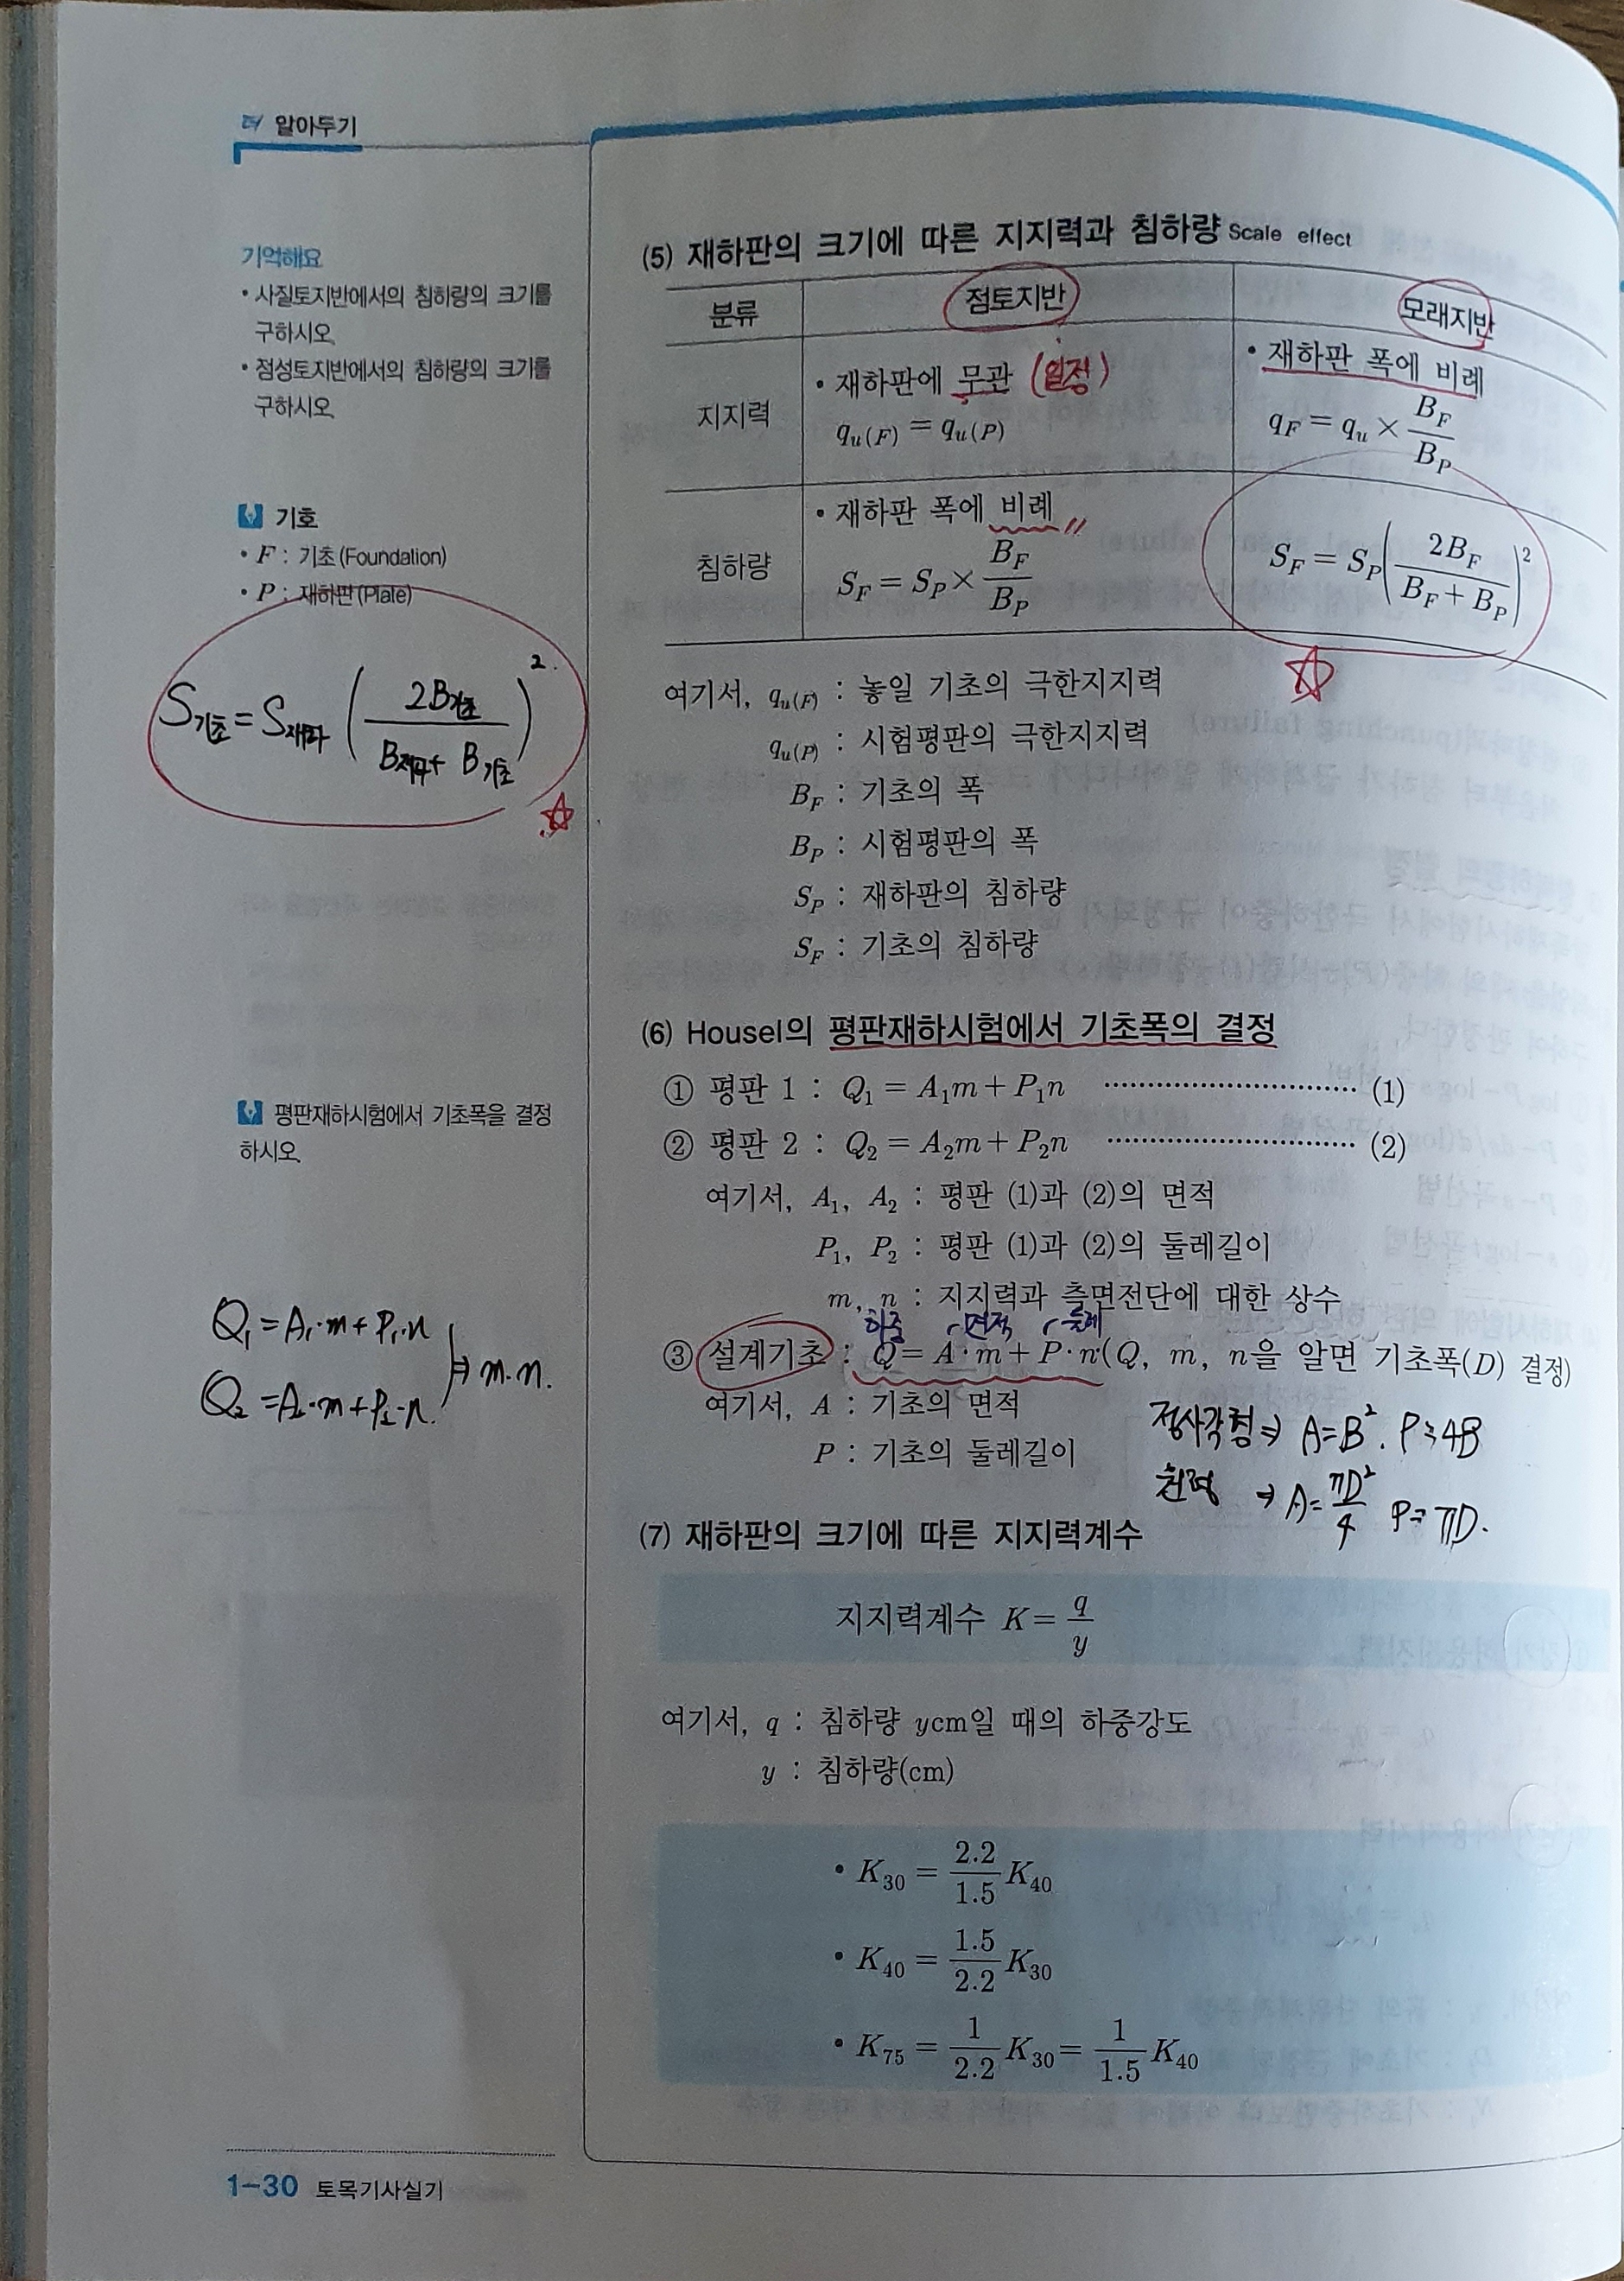 더 알아두기
기억해요
• 사질토지반에서의 침하량의 크기를
구하시오.
• 점성토지반에서의 침하량의 크기를
구하시오.
기호
• F : 기초(Foundation)
• P : 재하판(Plate)
S기초 = S재하 ( 2B기초 / B재하 + B기초 )².
평판재하시험에서 기초폭을 결정
하시오.
Q₁ = A₁·m + P₁·n
Q₂ = A₂·m + P₂·n. ⇒ m.n.
(5) 재하판의 크기에 따른 지지력과 침하량 Scale effect
분류 점토지반 모래지반
지지력 • 재하판에 무관 (일정) • 재하판 폭에 비례
q_u(F) = q_u(P) q_F = q_u × B_F / B_P
침하량 • 재하판 폭에 비례
S_F = S_P × B_F / B_P S_F = S_P ( 2B_F / B_F + B_P )²
여기서, q_u(F) : 놓일 기초의 극한지지력
q_u(P) : 시험평판의 극한지지력
B_F : 기초의 폭
B_P : 시험평판의 폭
S_P : 재하판의 침하량
S_F : 기초의 침하량
(6) Housel의 평판재하시험에서 기초폭의 결정
① 평판 1 : Q₁ = A₁m + P₁n ………………………… (1)
② 평판 2 : Q₂ = A₂m + P₂n ………………………… (2)
여기서, A₁, A₂ : 평판 (1)과 (2)의 면적
P₁, P₂ : 평판 (1)과 (2)의 둘레길이
m, n : 지지력과 측면전단에 대한 상수
하중 면적 둘레
③ 설계기초 : Q = A·m + P·n(Q, m, n을 알면 기초폭(D) 결정)
여기서, A : 기초의 면적
P : 기초의 둘레길이
정사각형 ⇒ A = B². P = 4B
원형 ⇒ A = πD² / 4 P = πD.
(7) 재하판의 크기에 따른 지지력계수
지지력계수 K = q / y
여기서, q : 침하량 ycm일 때의 하중강도
y : 침하량(cm)
• K₃₀ = 2.2 / 1.5 K₄₀
• K₄₀ = 1.5 / 2.2 K₃₀
• K₇₅ = 1 / 2.2 K₃₀ = 1 / 1.5 K₄₀
1-30 토목기사실기